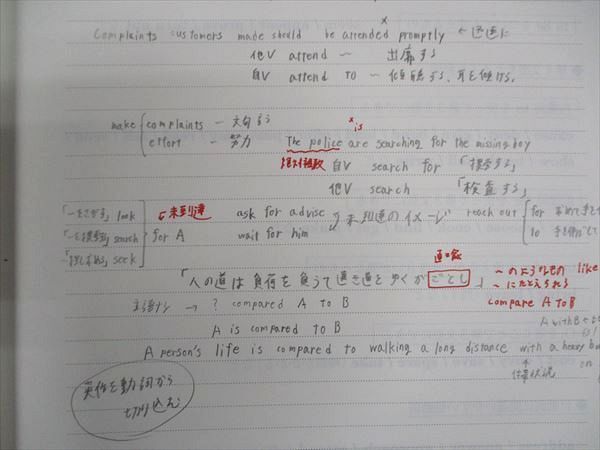 ×
Complaints customers made should be attended promptly ← 迅速に
他V attend ～ 出席する
自V attend TO ～ 傾聴する、耳を傾ける、
make complaints － 文句言う
effort － 努力
× is
The police are searching for the missing boy
絶対複数 自V search for 「捜索する」
他V search 「検査する」
「～をさがす」 look
「～を捜索」 search for A
seek
未到達 ask for advise 未到達のイメージ reach out for
wait for him to
直喩
「人の道は重荷を負うて遠き道を歩くがごとし」 ～のようなもの like
～にたとえられる
主語ナシ → ? compared A to B compare A to B
A is compared to B
A with B
A person's life is compared to walking a long distance with a heavy
付帯状況 on
英作を動詞から
切り込む